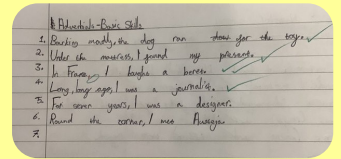 Adverbials - Basic Skills
1. Barking madly, the dog ran down for the toy.
2. Under the mattress, I found my present.
3. In France, I bought a beret.
4. Long, long ago, I was a journalist.
5. For seven years, I was a designer.
6. Round the corner, I met
7.